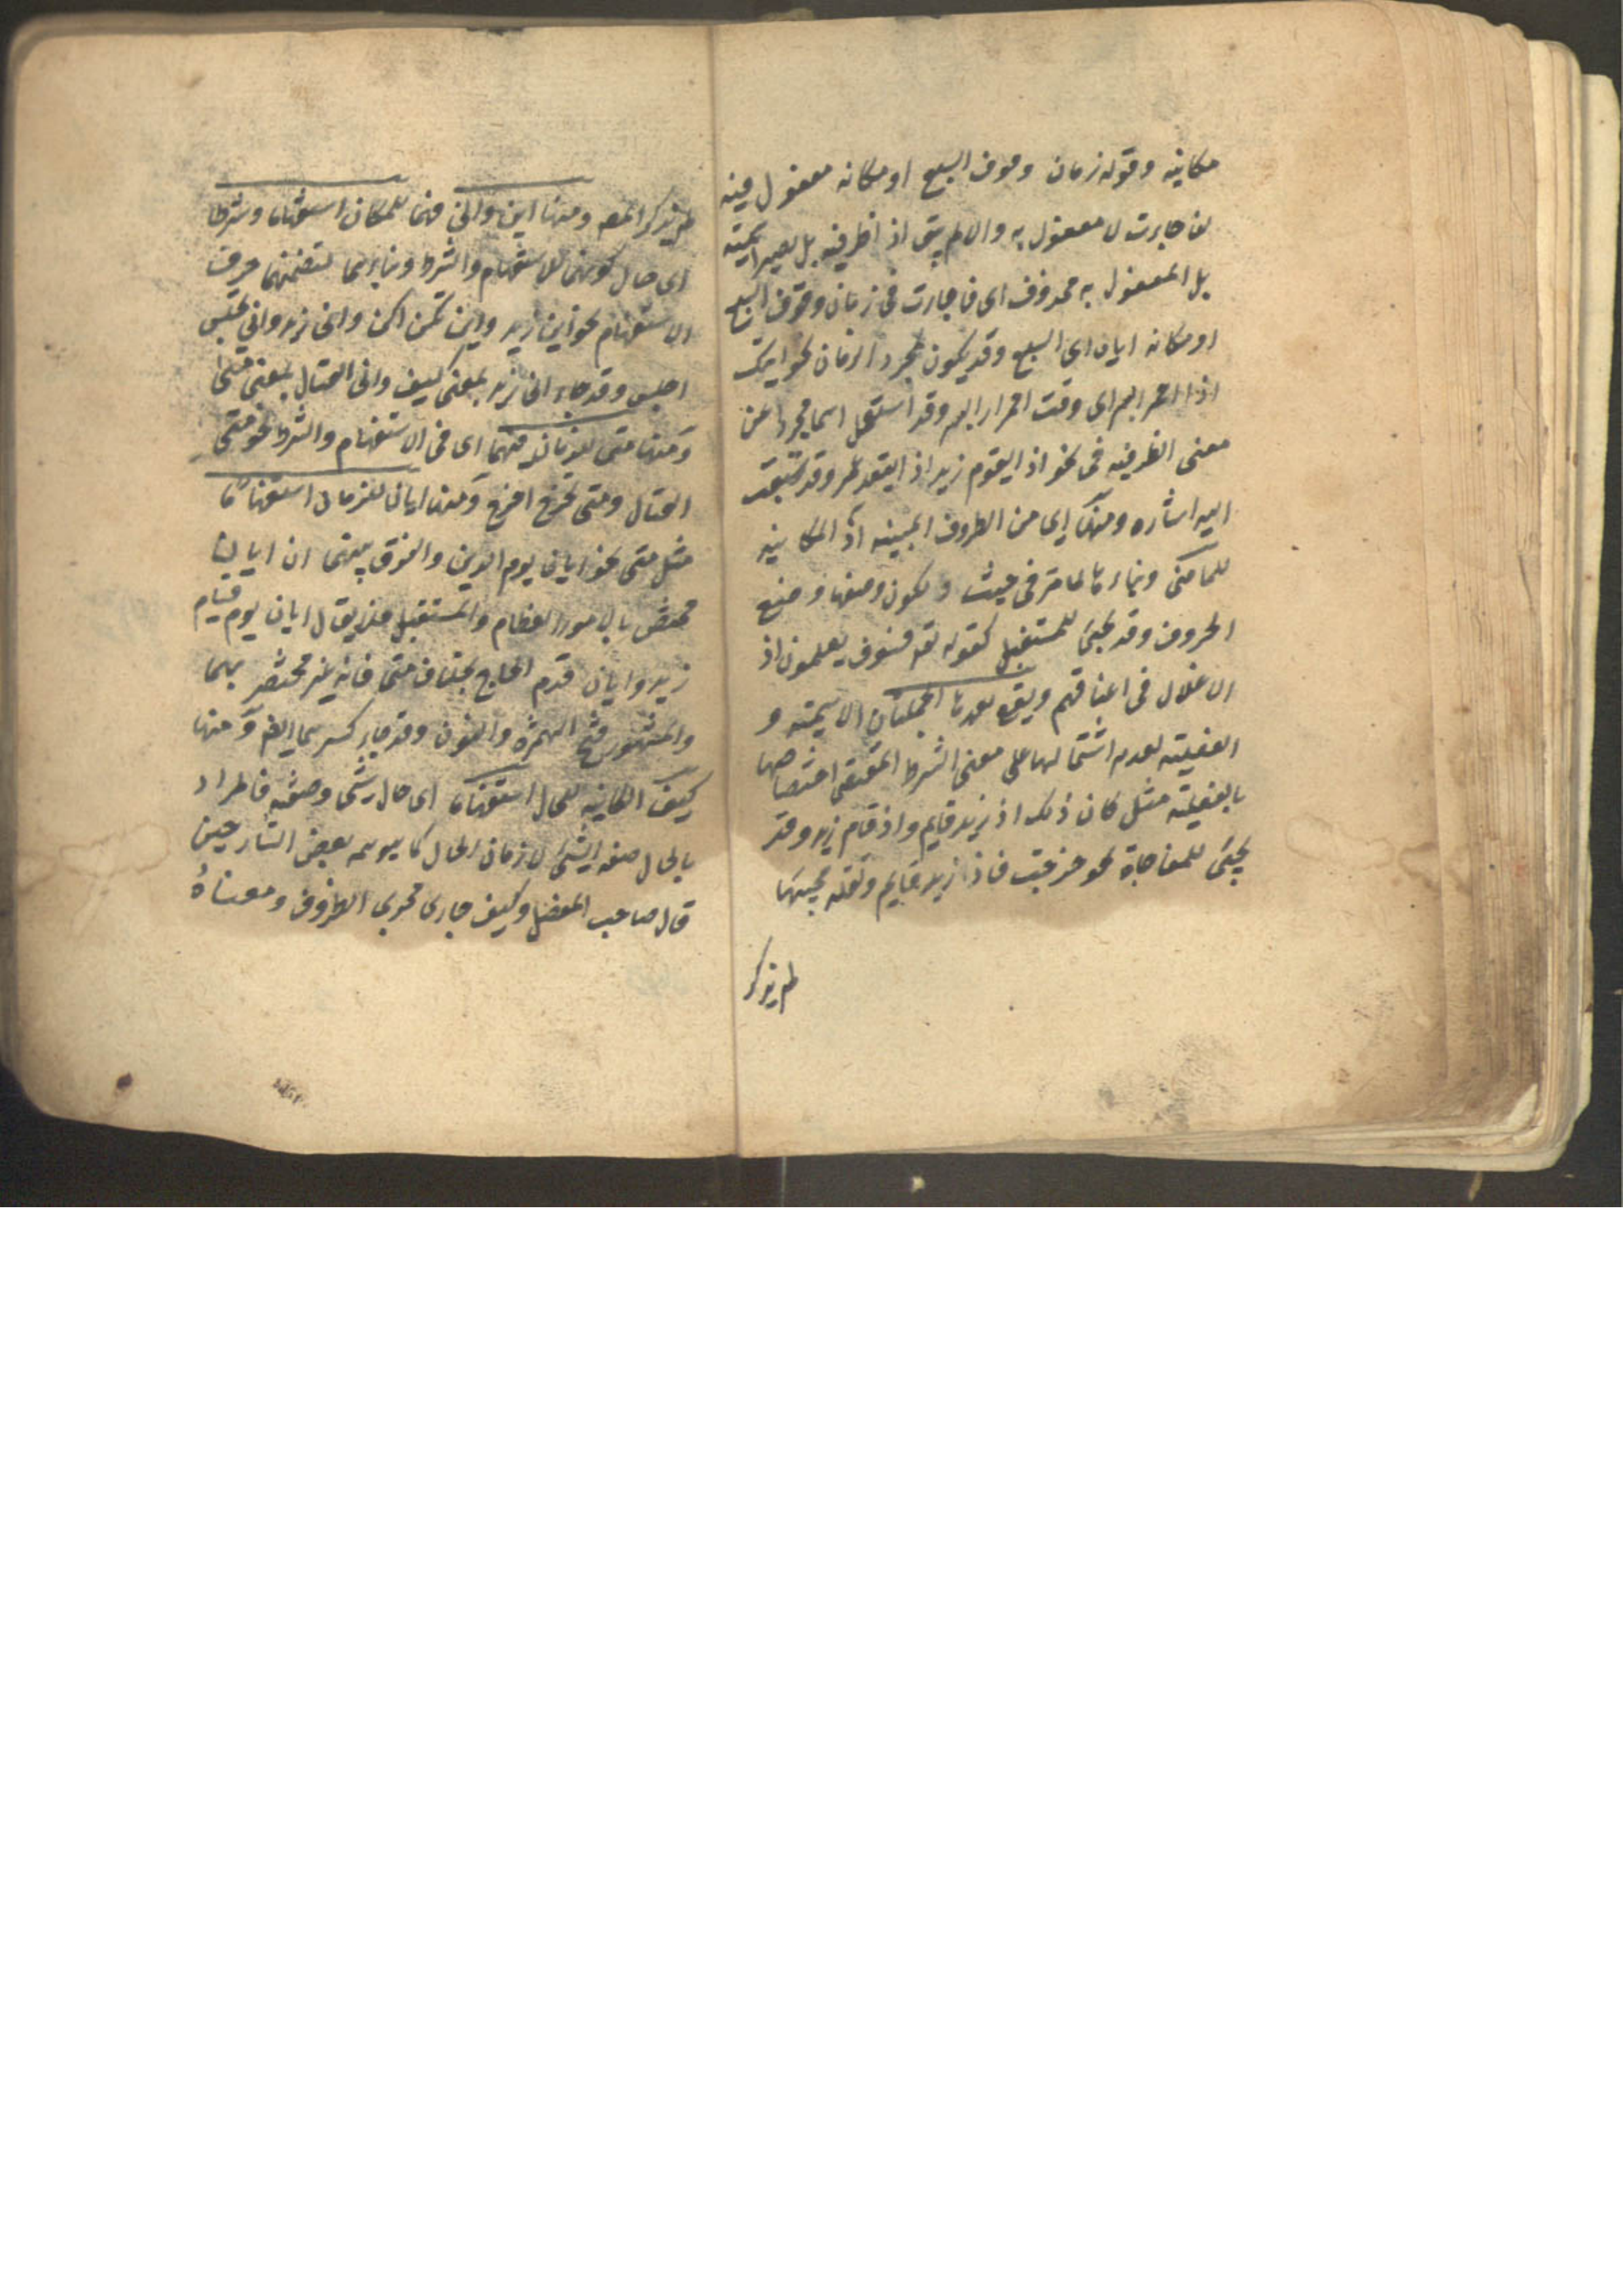 مكانيه وقوله زمان وقوف السبع او مكانه مفعول فيه
لفاجات لا مفعول به والا لم يبق اذا ظرفيه بل يصير اسميته
بل المفعول به محذوف اى فاجات فى زمان وقوف السبع
او مكانه اياه اى السبع وقد يكون لمجرد الزمان نحو اتيك
اذا احمر البسر اى وقت احمرار البسر وقد استعمل اسما مجردا عن
معنى الظرفيه فى نحو اذا يقوم زيد اذا يقعد عمرو وقد سبقت
اليه اشاره ومنها اى من الظروف المبنيه اذ الكائنه
للماضى وبناءها لما مر فى حيث ولكون وضعها وضع
الحروف وقد تجئ للمستقبل كقوله تعه فسوف يعلمون اذ
الاغلال فى اعناقهم ويقع بعدها الجملتان الاسميته و
الفعليته لعدم اشتمالها على معنى الشرط المقتضى اختصاصها
بالفعليته مثل كان ذلك اذ زيد قايم واذ قام زيد وقد
تجئ للمفاجاة نحو خرجت فاذا زيد قايم ولقله مجيئها
لم يذكر
لم يذكر المصه ومنها اين وانى فهما للمكان استفهاما وشرطا
اى حال كونهما للاستفهام والشرط وبناءهما لتضمنهما حرف
الاستفهام نحو اين زيد واين تكن اكن وانى زيد وانى تجلس
اجلس وقد جاء انى زيد بمعنى كيف وانى القتال بمعنى متى
ومنها متى للزمان فيهما اى فى الاستفهام والشرط نحو متى
القتال ومتى تخرج اخرج ومنها ايان للزمان استفهاما
مثل متى نحو ايان يوم الدين والفرق بينهما ان ايان
مختص بالامور العظام والمستقبل فلا يقال ايان يوم قيام
زيد وايان قدم الحاج بخلاف متى فانه غير مختصر بهما
والمشهور فتح الهمزه والنون وقد جاء كسرهما ايضا ومنها
كيف الكاينه للحال استفهاما اى حال شئ وصفته فالمراد
بالحال صفه الشئ لا زمان الحال كما يوهمه بعض الشارحين
قال صاحب المفصل وكيف جارى مجرى الظروف ومعناه